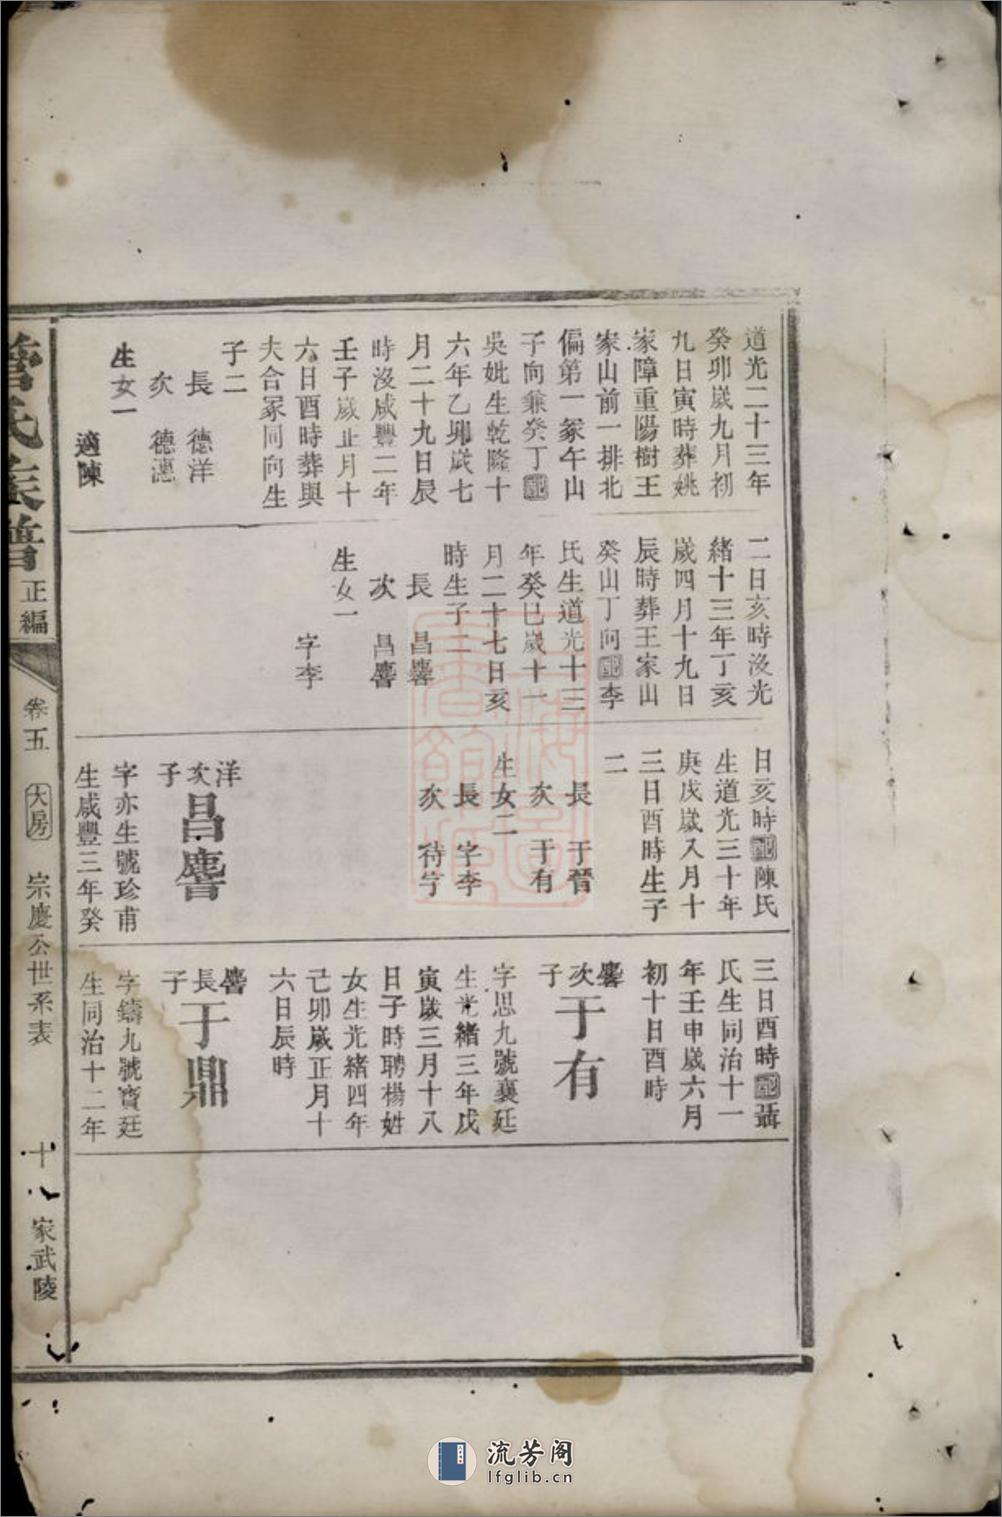 道光二十三年
癸卯歲九月初
九日寅時葬姚
家障重陽樹王
家山前一排北
偏第一冢午山
子向兼癸丁配
吳妣生乾隆十
六年乙卯歲七
月二十九日辰
時沒咸豐二年
壬子歲正月十
六日酉時葬與
夫合冢同向生
子二
長 德洋
次 德
生女一
適陳
二日亥時沒光
緒十三年丁亥
歲四月十九日
辰時葬王家山
癸山丁向配李
氏生道光十三
年癸巳歲十一
月二十七日亥
時生子二
長 昌
次 昌
生女一
字李
日亥時配陳氏
生道光三十年
庚戌歲八月十
三日酉時生子
二
長 于晉
次 于有
生女二
長 字李
次 待字
洋次子
昌
字亦生號珍甫
生咸豐三年癸
三日酉時配聶
氏生同治十一
年壬申歲六月
初十日酉時
次子
于有
字思九號襄廷
生光緒三年戊
寅歲三月十八
日子時聘楊姓
女生光緒四年
己卯歲正月十
六日辰時
長子
于鼎
字鑄九號寶廷
生同治十二年
氏族譜 正編
卷五 大房 宗慶公世系表
十 家武陵
流芳阁
lfglib.cn